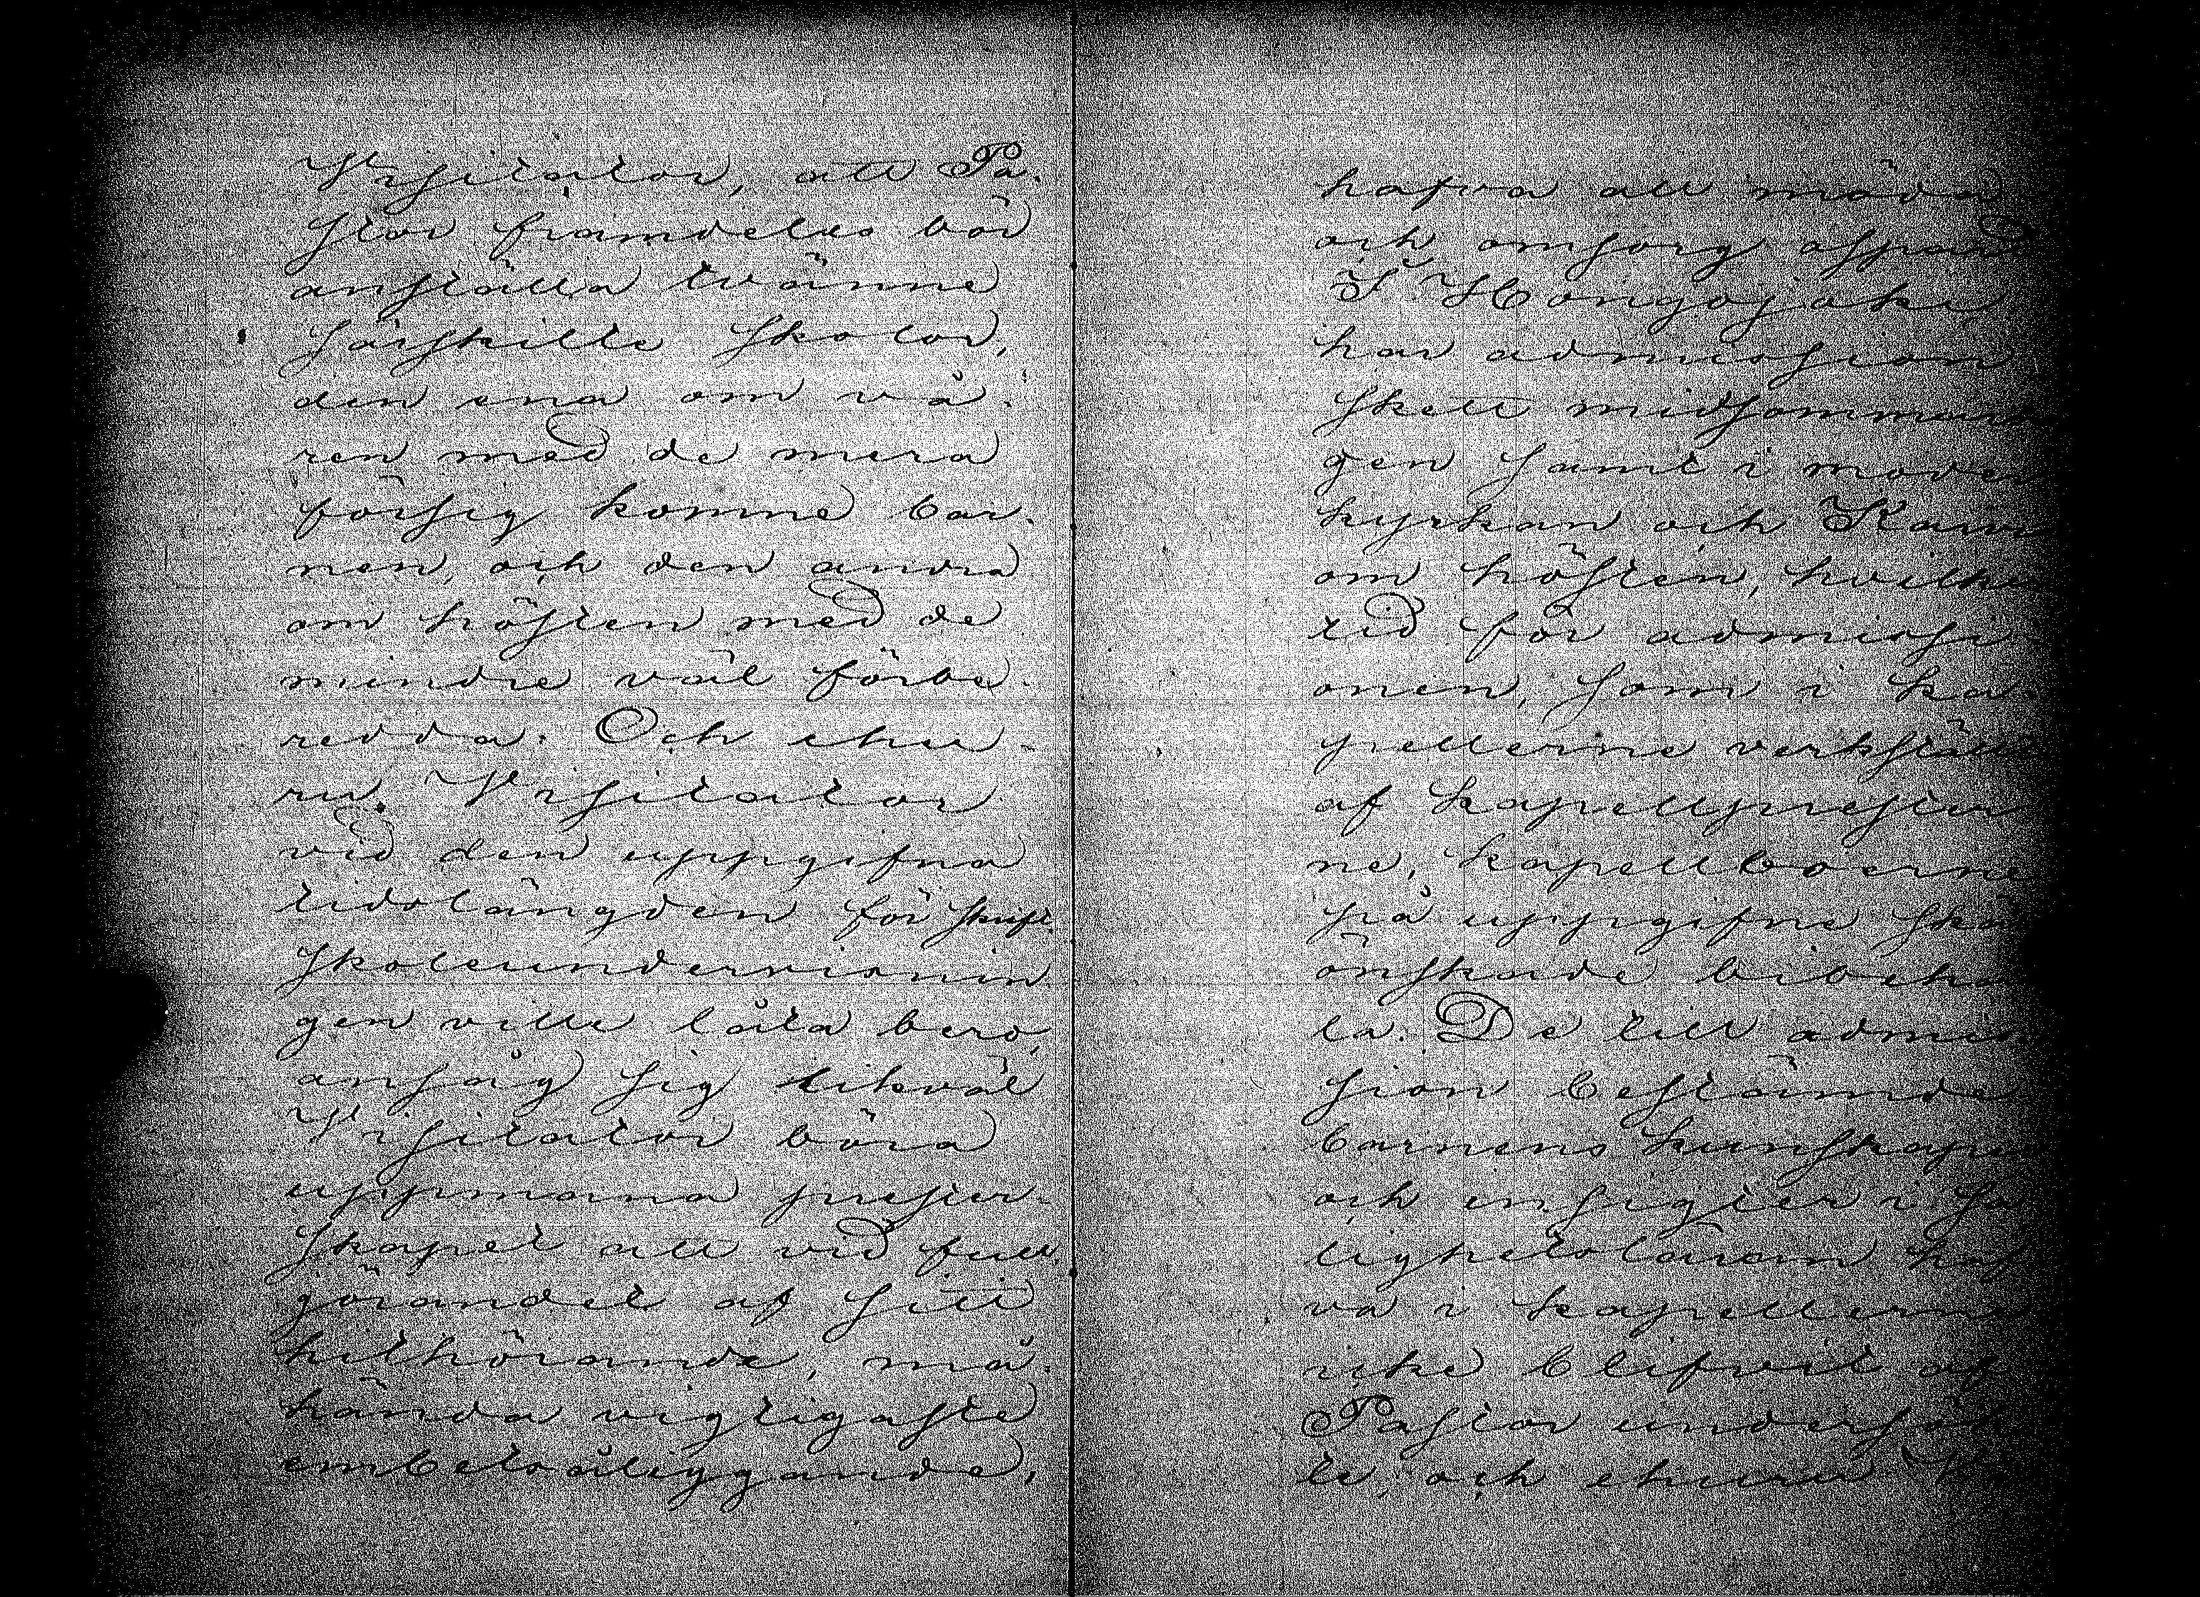 Visitator, att Pa-
stor framdeles bör
anställa tvänne
särskilte skolor,
den ena om vå-
ren med de mera
försig komne bar-
nen, och den andra
om hösten med de
mindre väl förbe-
redda. Och ehu-
ru Visitator
vid den uppgifna
tidslängden för skrift
skoleundervisnin
gen ville låta bero,
ansåg sig likväl
Visitator böra
uppmana prester-
skapet att vid full-
görandet af sitt
hithörande, må-
hända vigtigaste
embetsåliggande,
hafva all möda
och omsorg ospard
I Hongojoki
har admission
skett midsommar
gen samt i moder
kyrkan och Kau
om hösten, hvilken
tid för admissi
onen, som i ka-
pellerne verkställ
af kapellprester
ne, kapellboerne
på uppgifne skä
önskade bibehå
la. De till admis-
sion bestämde
barnens kunskaper
och insigter i sa
lighetsläran haf
va i kapellerne
icke blifvit af
Pastor undersök
te, och ehuru Vi